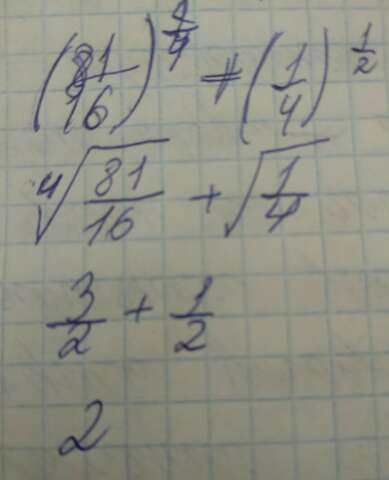 (81/16)^(1/4) + (1/4)^(1/2)
⁴√(81/16) + √(1/4)
3/2 + 1/2
2